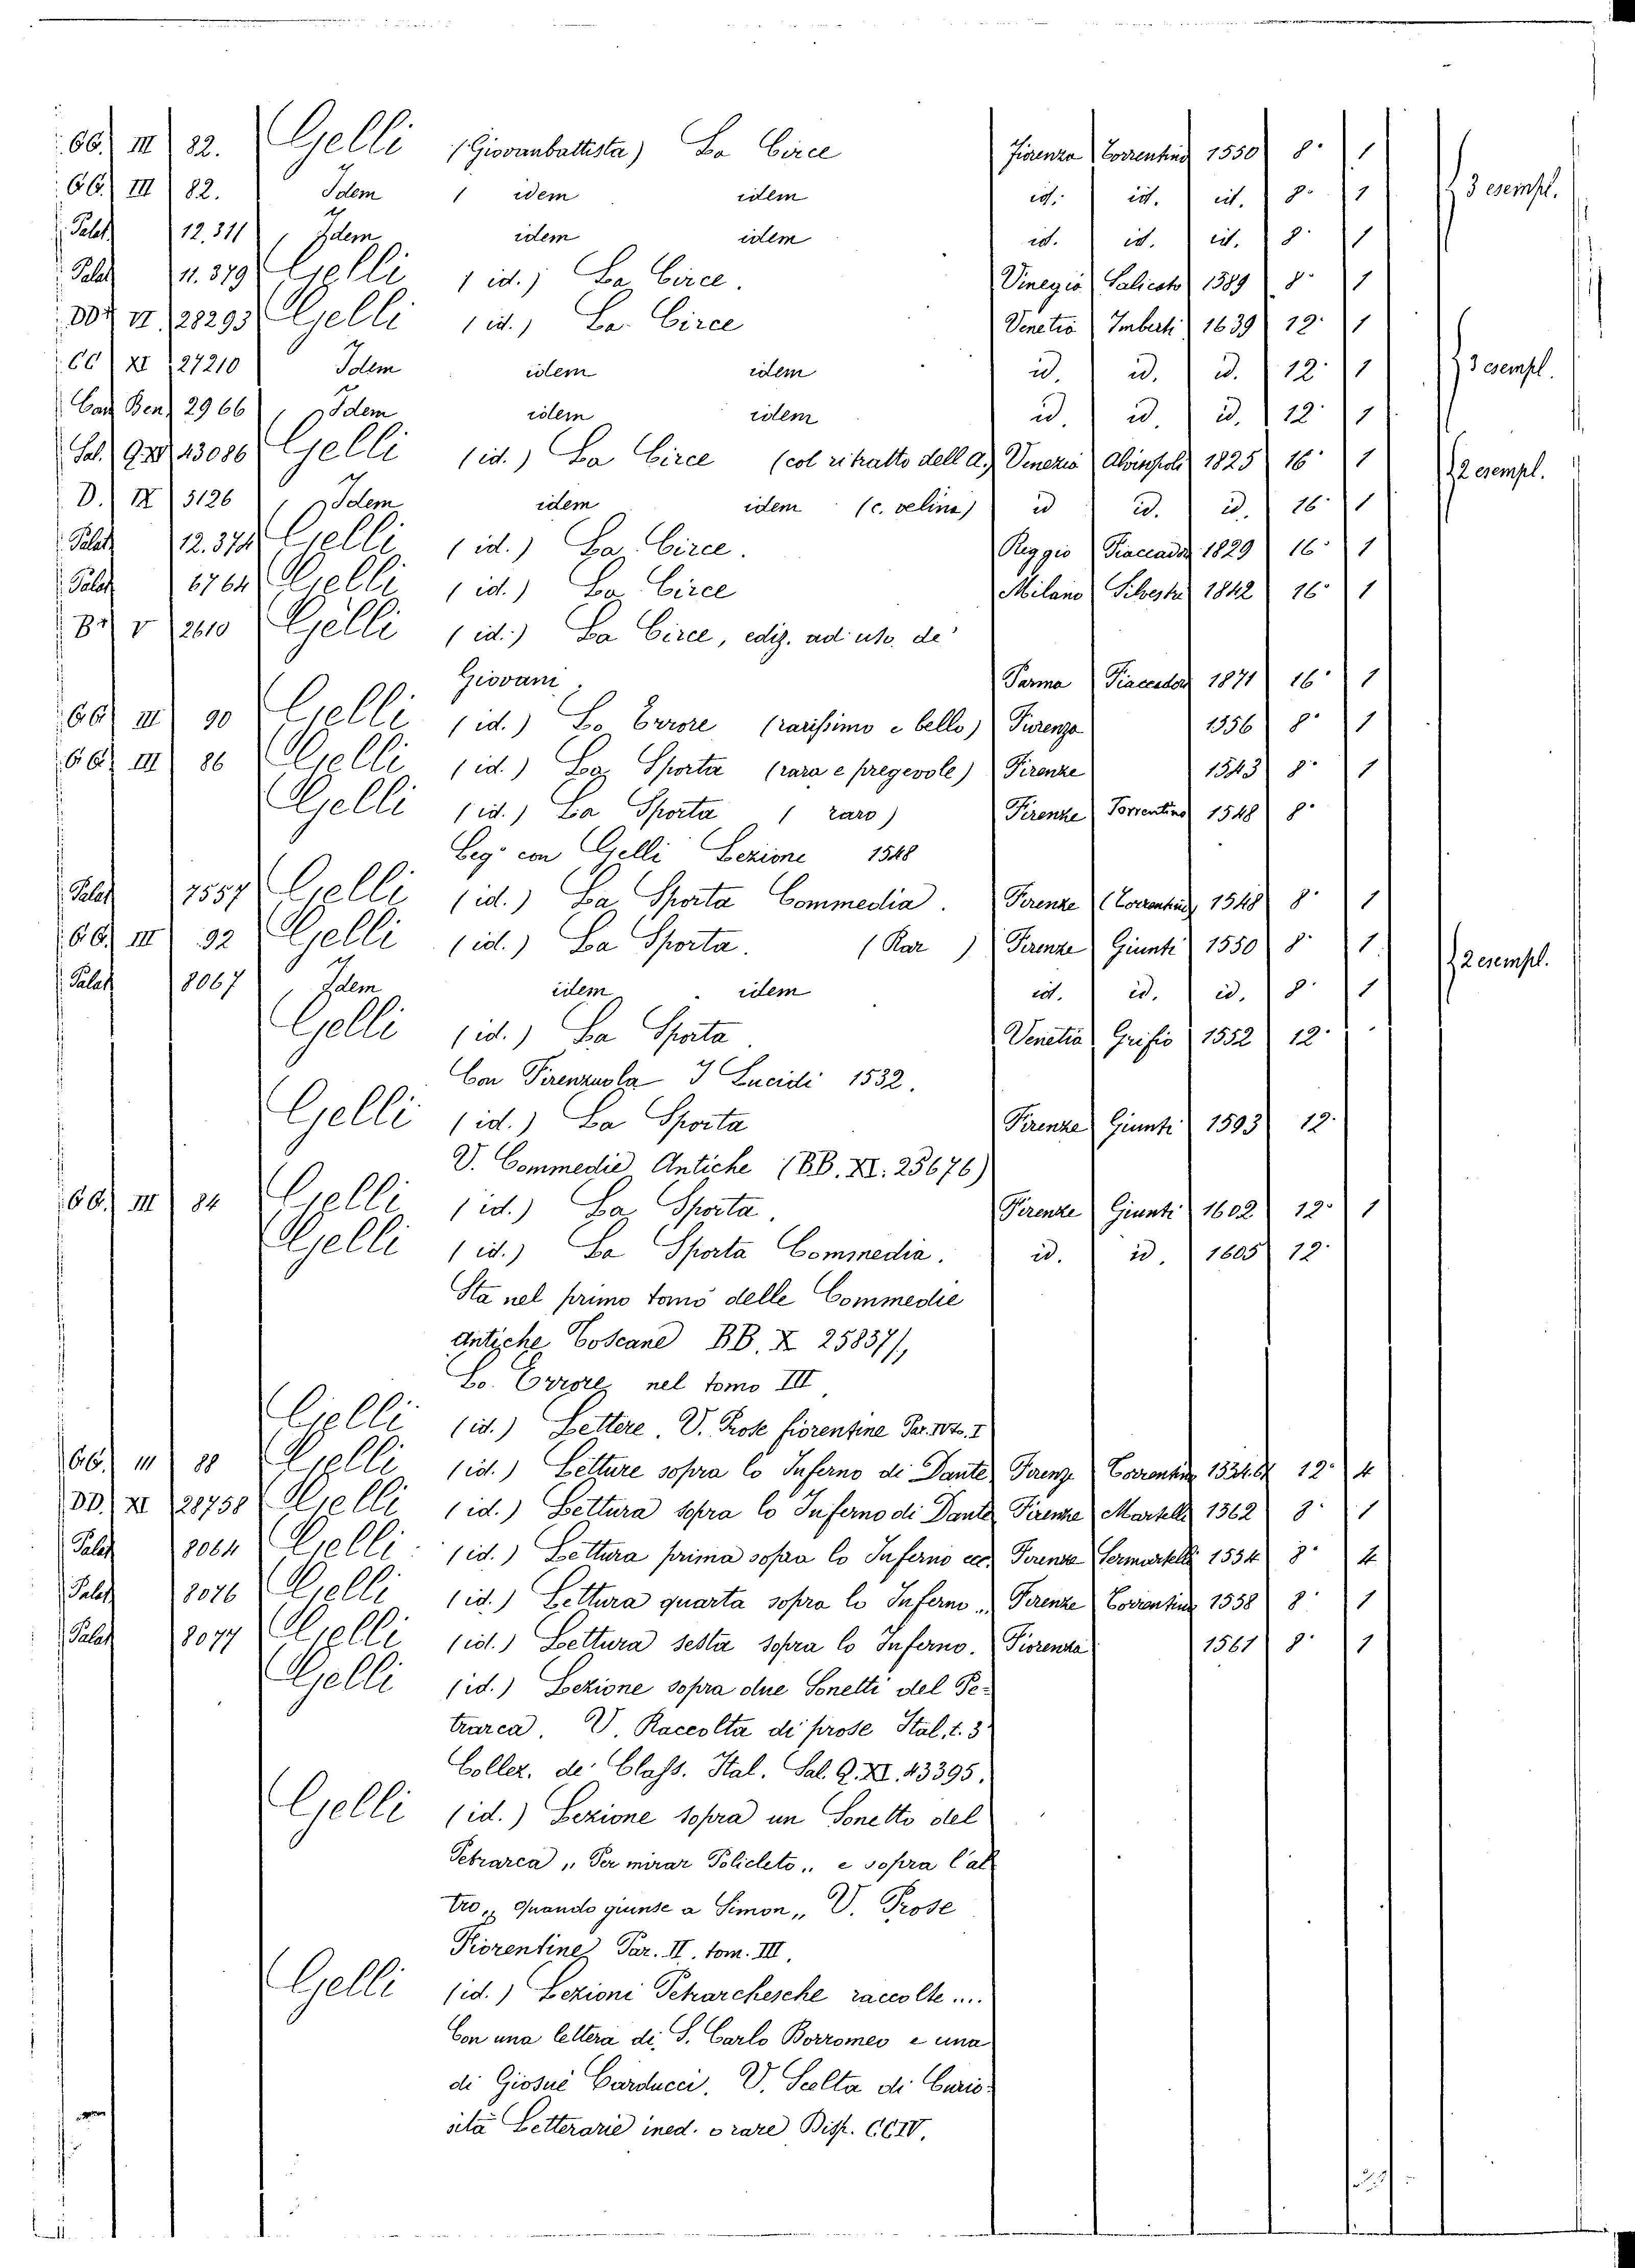 66. III 82. Gelli (Giovanbattista) La Circe Fiorenza Torrentino 1550 8° 1
66. III 82. Idem ( idem idem id. id. id. 8° 1 3 esempl.
Palat. 12.311 Idem idem idem id. id. id. 8° 1
Palat. 11.379 Gelli (id.) La Circe. Vinegia Salicato 1589 8° 1
DD. VI 28293 Gelli (id.) La Circe Venetia Imberti 1639 12° 1
CC XI 27210 Idem idem idem id. id. id. 12° 1 3 esempl.
Cap. Ben. 2966 Idem idem idem id. id. id. 12° 1
Sal. Q. XI 43086 Gelli (id.) La Circe (col ritratto dell'a.) Venezia Alvisopoli 1825 16° 1 2 esempl.
D. IX 5126 Idem idem idem (c. velina) id id. id. 16° 1
Palat. 12.374 Gelli (id.) La Circe. Reggio Fiaccadori 1829 16° 1
Palat. 6764 Gelli (id.) La Circe Milano Silvestri 1842 16° 1
B V 2610 Gelli (id.) La Circe, ediz. ad uso de'
Giovani. Parma Fiaccadori 1871 16° 1
66. III 90 Gelli (id.) Lo Errore (rarissimo e bello) Fiorenza 1556 8° 1
66. III 86 Gelli (id.) La Sporta (rara e pregevole) Firenze 1543 8° 1
Gelli (id.) La Sporta ( raro) Firenze Torrentino 1548 8°
Leg° con Gelli Lezione 1548
Palat. 7557 Gelli (id.) La Sporta Commedia. Firenze (Torrentino) 1548 8° 1
66. III 92 Gelli (id.) La Sporta. (Rar ) Firenze Giunti 1550 8° 1
Palat. 8067 Idem idem idem id. id. id. 8° 1 2 esempl.
Gelli (id.) La Sporta Venetia Grifio 1552 12°
Con Firenzuola I Lucidi 1532.
Gelli (id.) La Sporta Firenze Giunti 1593 12°
V. Commedie Antiche (BB. XI. 25676)
66. III 84 Gelli (id.) La Sporta. Firenze Giunti 1602 12° 1
Gelli (id.) La Sporta Commedia. id. id. 1605 12°
Sta nel primo tomo delle Commedie
Antiche Toscane BB. X 25837),
Lo Errore nel tomo III
Gelli (id.) Lettere. V. Prose fiorentine Par. IV to. I
66. III 88 Gelli (id.) Letture sopra lo Inferno di Dante Firenze Torrentino 12° 4
DD. XI 28758 Gelli (id.) Lettura sopra lo Inferno di Dante Firenze Martelli 1562 8° 1
Palat. 8064 Gelli (id.) Lettura prima sopra lo Inferno ecc. Firenze Sermartelli 1554 8°
Palat. 8076 Gelli (id.) Lettura quarta sopra lo Inferno „ Firenze Torrentino 1558 8° 1
Palat. 8077 Gelli (id.) Lettura sesta sopra lo Inferno. Fiorenza 1561 8° 1
Gelli (id.) Lezione sopra due Sonetti del Pe-
trarca. V. Raccolta di prose Ital. t. 3
Collez. de' Class. Ital. Sal. Q. XI. 43395.
Gelli (id.) Lezione sopra un Sonetto del
Petrarca „ Per mirar Policleto „ e sopra l'al
tro „ Quando giunse a Simon „ V. Prose
Fiorentine Par. II. tom. III.
Gelli (id.) Lezioni Petrarchesche raccolte....
Con una lettera di S. Carlo Borromeo e una
di Giosuè Carducci. V. Scelta di Curio-
sità Letterarie ined. o rare Disp. CCIV.